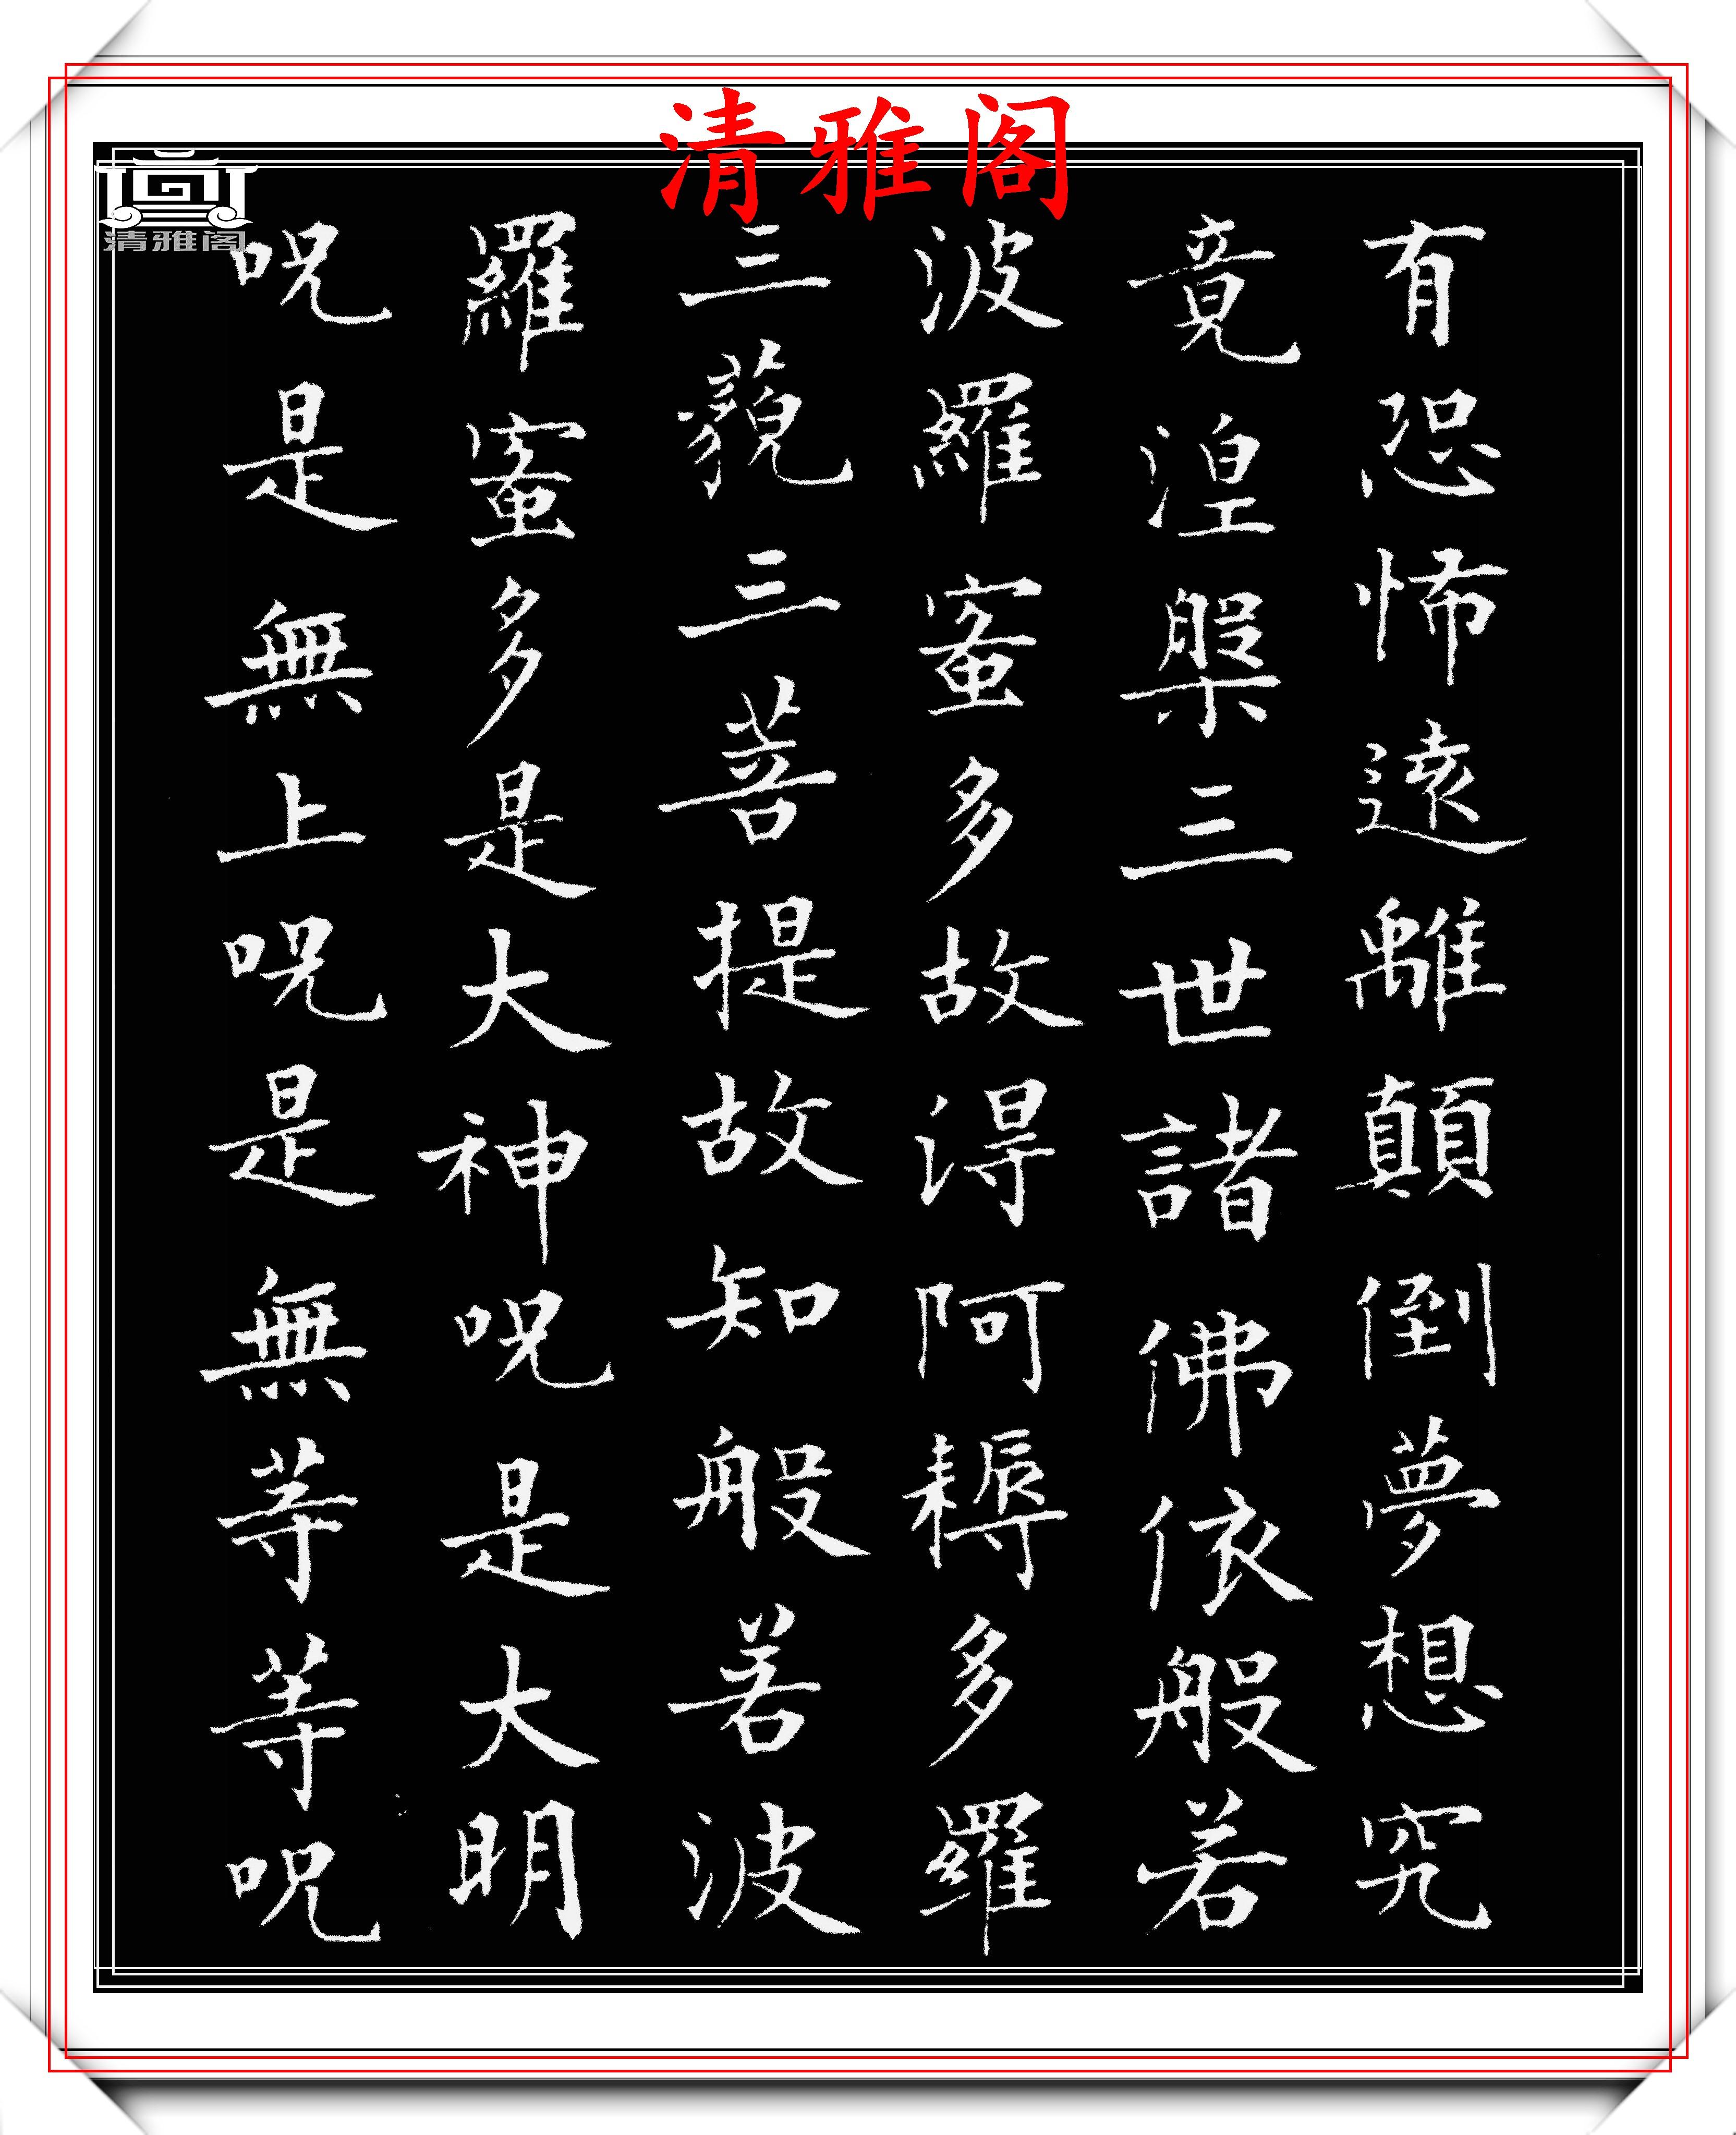 清雅阁
清雅阁
有恐怖遠離顛倒夢想究
竟涅槃三世諸佛依般若
波羅蜜多故得阿耨多羅
三藐三菩提故知般若波
羅蜜多是大神呪是大明
呪是無上呪是無等等呪